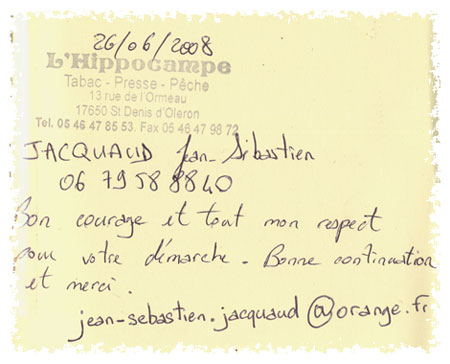 26/06/2008
L'Hippocampe
Tabac - Presse - Pêche
13 rue de l'Ormeau
17650 St Denis d'Oleron
Tel. 05 46 47 85 53. Fax 05 46 47 98 72
JACQUAUD Jean-Sébastien
06 79 58 88 40
Bon courage et tout mon respect
pour votre démarche. Bonne continuation
et merci.
jean-sebastien.jacquaud@orange.fr